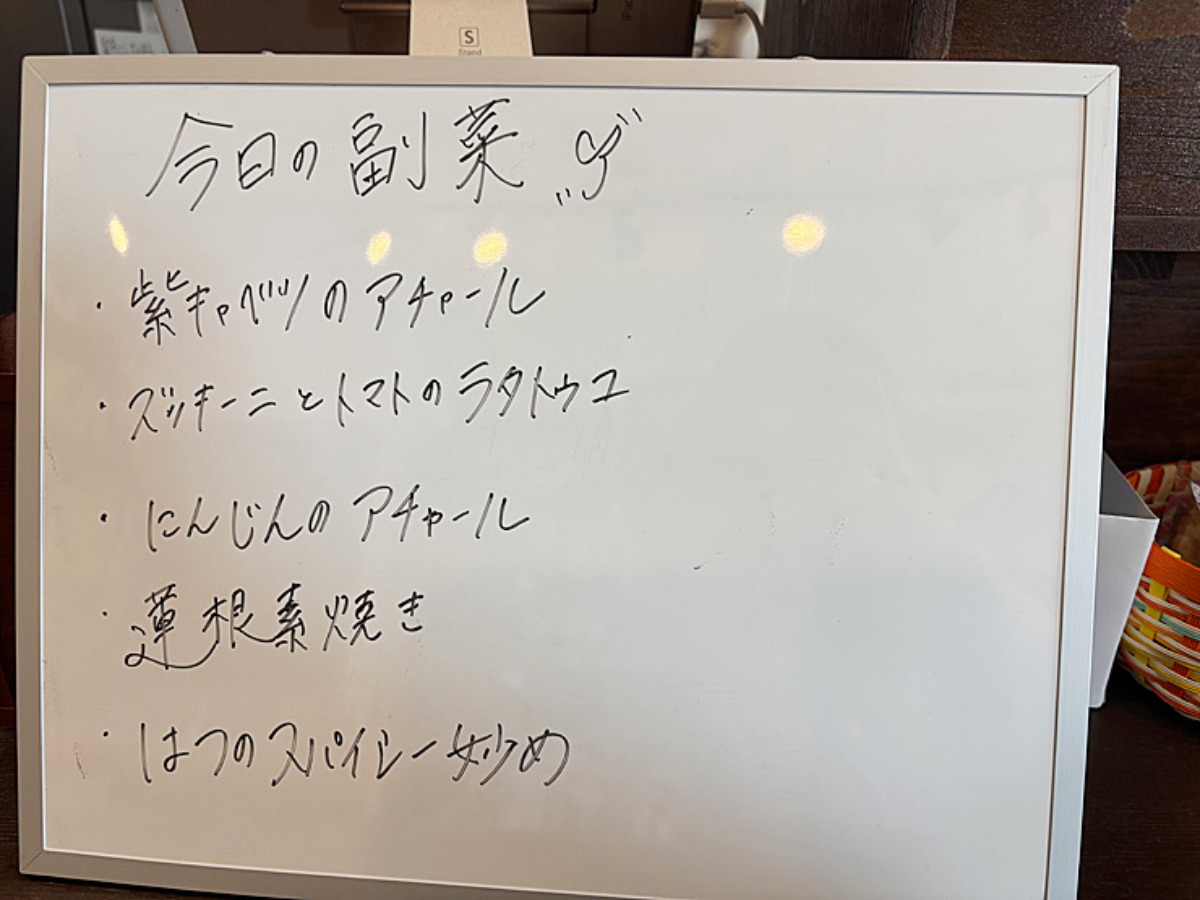 S
Stand
iPad
今日の副菜
・紫キャベツのアチャール
・ズッキーニとトマトのラタトゥユ
・にんじんのアチャール
・蓮根素焼き
・はつのスパイシー妙め